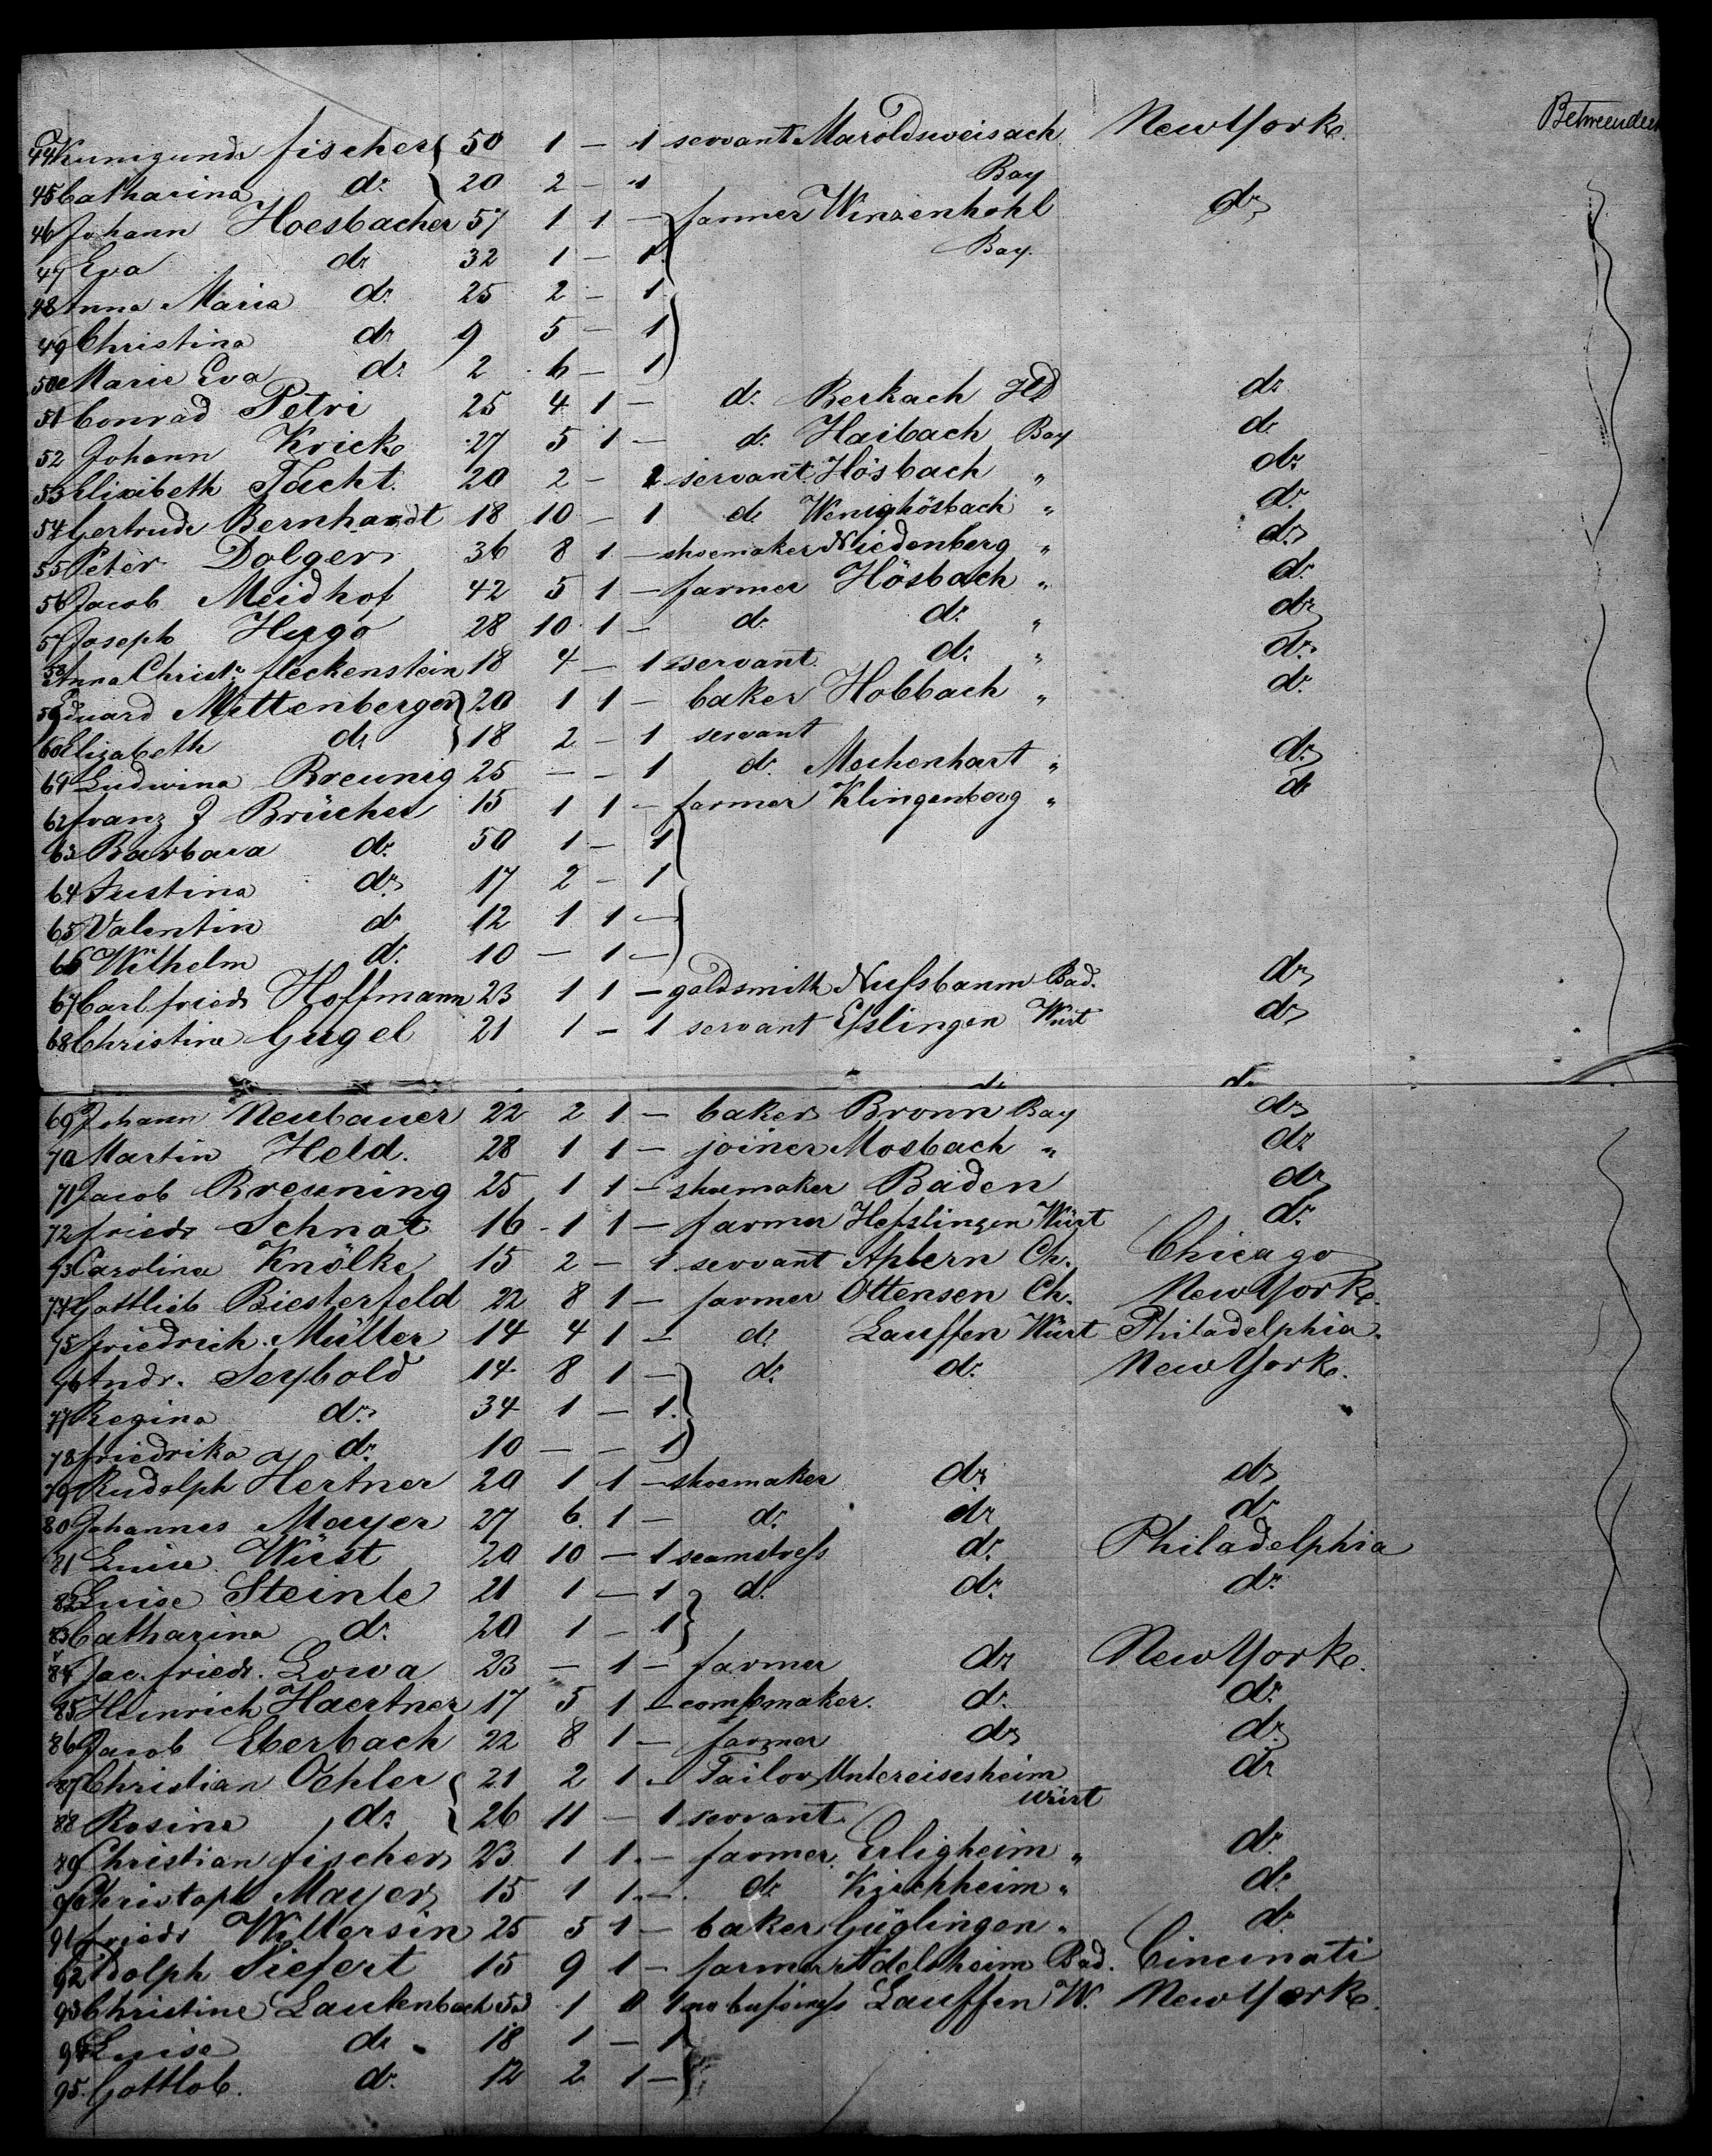 Betweendeck
44 Kunigunde Fischer 50 1 – 1 servant Maroldsweisach New York.
45 Catharina do 20 2 – 1 Bay
46 Johann Hoesbacher 57 1 1 – farmer Winzenhohl do
47 Eva do 32 1 – 1 Bay.
48 Anna Maria do 25 2 – 1
49 Christina do 9 5 – 1
50 Marie Eva do 2 6 – 1
51 Conrad Petri 25 4 1 – do Berkach HD do
52 Johann Kricke 27 5 1 – do Haibach Bay do
53 Elisabeth Tacht. 20 2 – 1 servant Hösbach " do
54 Gertrude Bernhardt 18 10 – 1 do Wenighösbach " do
55 Peter Dolger 36 8 1 – shoemaker Niedenberg " do
56 Jacob Meidhof 42 5 1 – farmer Hösbach " do
57 Joseph Hugo 28 10 1 – do do " do
58 Anna Christe fleckenstein 18 4 – 1 servant do " do
59 Eduard Mittenberger 20 1 1 – baker Hobbach " do
60 Elizabeth do 18 2 – 1 servant
61 Ludwina Breunig 25 – – 1 do Mechenhart " do
62 franz J Brücher 15 1 1 – farmer Klingenberg " do
63 Barbara do 50 1 – 1
64 Justina do 17 2 – 1
65 Valentin do 12 1 1 –
66 Wilhelm do 10 – 1 –
67 Carl friedr Hoffmann 23 1 1 – goldsmith Nußbaum Bad. do
68 Christine Gugel 21 1 – 1 servant Eßlingen Würt do
do do
69 Johann Neubauer 22 2 1 – baker Bronn Bay do
70 Martin Held. 28 1 1 – joiner Mosbach " do
71 Jacob Breuning 25 1 1 – shoemaker Baden do
72 friedr Schnat 16 1 1 – farmer Heßlingen Würt do
73 Carolina Knölke 15 2 – 1 servant Aplern Ch. Chicago
74 Gottlieb Biesterfeld 22 8 1 – farmer Ottensen Ch. New York.
75 friedrich Müller 14 4 1 – do Lauffen Würt Philadelphia.
76 Andr. Seybold 14 8 1 – do do New York.
77 Regina do 34 1 – 1
78 friedrika do 10 – – 1
79 Rudolph Hertner 20 1 1 – shoemaker do do
80 Johannes Mayer 27 6 1 – do do do
81 Luise Würst 20 10 – 1 seamstreß do Philadelphia
82 Luise Steinle 21 1 – 1 do do do
83 Catharina do 20 1 – 1
84 Jac. friedr. Lowa 23 – 1 – farmer do New York.
85 Heinrich Haertner 17 5 1 – combmaker. do do
86 Jacob Eberbach 22 8 1 – farmer do do
87 Christian Oehler 21 2 1 – Tailor Untereisesheim do
88 Rosine do 26 11 – 1 servant Würt
89 Christian fischer 23 1 1 – farmer Erligheim " do
90 Christoph Mayer 15 1 1 – do Kirchheim " do
91 friedr Willersin 25 5 1 – baker Güglingen " do
92 Adolph Siefert 15 9 1 – farmer Adelsheim Bad. Cincinati
93 Christine Laukenbach 53 1 0 1 no busineß Lauffen W. New York.
94 Luise do 18 1 – 1
95. Gottlob. do 12 2 1 –